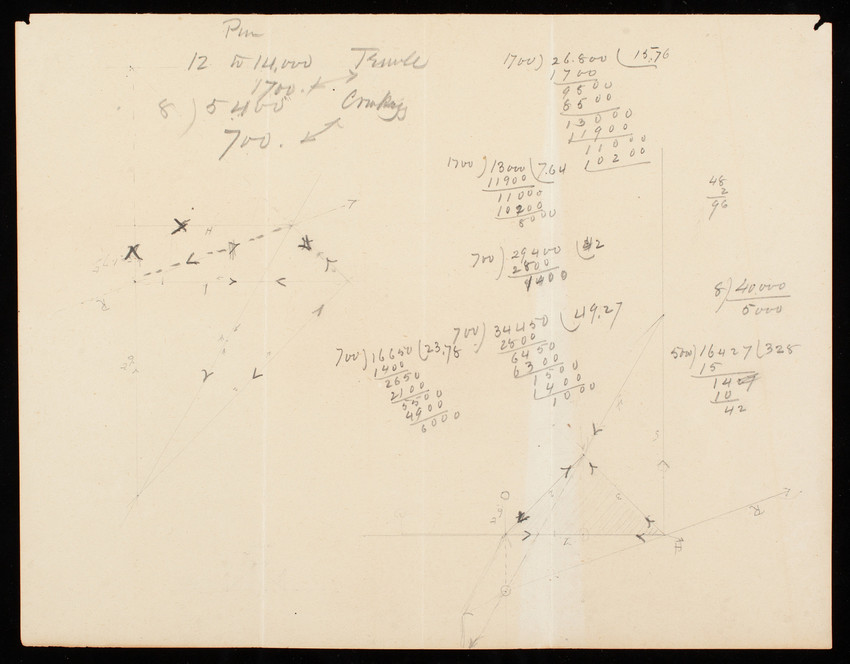 Pin
12 to 14,000 Tensile
1700.
8 ) 5400
700.
1700) 26.800 ( 15.76
1700
9800
8500
13000
11900
11000
10200
1700) 13000 ( 7.64
11900
11000
10200
8000
48
2
96
700) 29400 ( 42
2800
1400
8) 40000
5000
700) 34450 ( 49.27
2800
6450
6300
1500
1400
1000
700) 16650 ( 23.78
1400
2650
2100
5500
4900
6000
500) 16427 ( 328
15
14
10
42